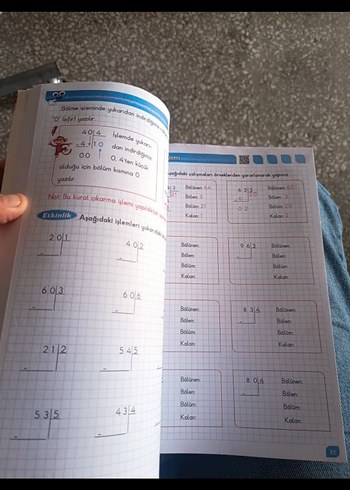 Bölme işleminde yukarıdan indirdiğimiz
"0" (sıfır) yazılır.
40 4
- 4 10
00
İşlemde yukarı-
dan indirdiğimiz
0, 4'ten küçük
olduğu için bölüm kısmına 0
yazılır.
Not: Bu kural çıkarma işlemi yapıldıktan
Etkinlik Aşağıdaki işlemleri yukarıdaki
20 1
40 2
60 3
60 6
21 2
54 5
53 5
43 4
aşağıdaki çalışmaları örneklerden yararlanarak yapınız.
Bölünen:
Bölen:
Bölüm:
Kalan:
62
Bölünen:
Bölen:
Bölüm:
Kalan:
Bölünen:
Bölen:
Bölüm:
Kalan:
96 3
Bölünen:
Bölen:
Bölüm:
Kalan:
Bölünen:
Bölen:
Bölüm:
Kalan:
83 4
Bölünen:
Bölen:
Bölüm:
Kalan:
Bölünen:
Bölen:
Bölüm:
Kalan:
80 4
Bölünen:
Bölen:
Bölüm:
Kalan: